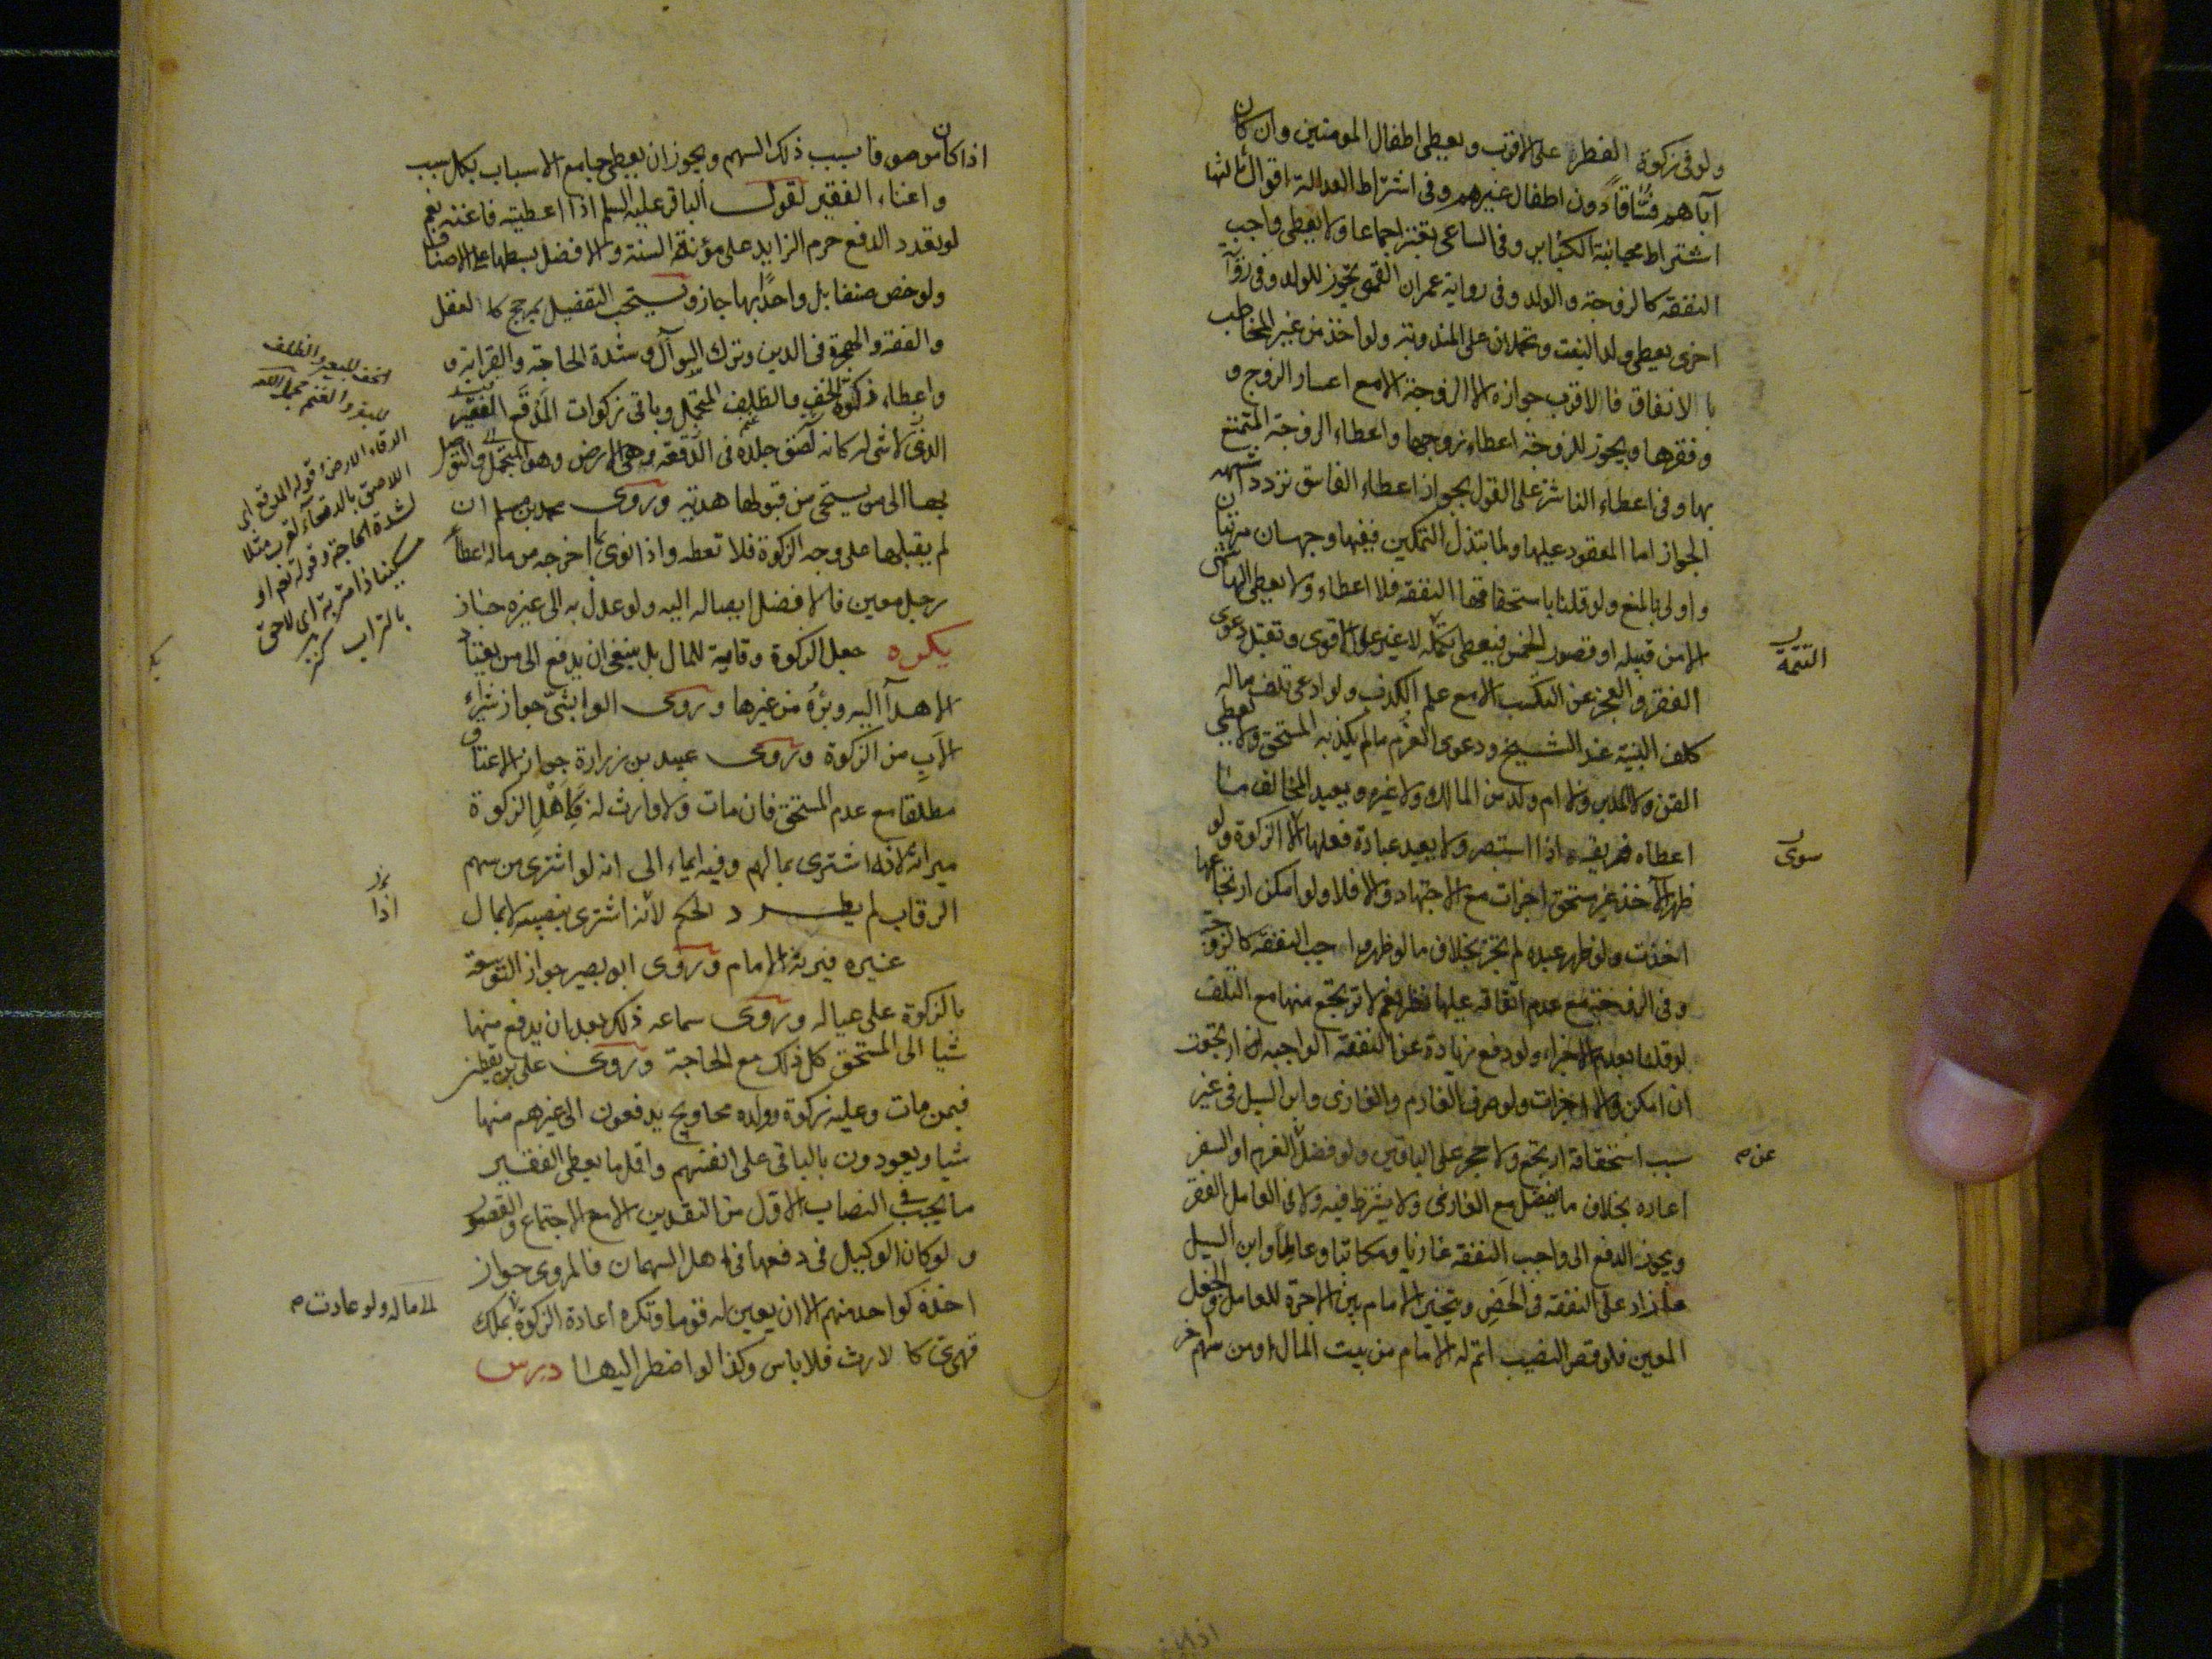 ولو فى زكوة الفطرة على الاقرب ويعطى اطفال المومنين وان كان
آباهم فسّاقاً دون اطفال غيرهم وفى اشتراط العدالة اقوال ثالثها
اشتراط مجانبة الكبائر وفى الساعى يعتبر اجماعا ولا يعطى واجب
النفقه كالزوجة والولد وفى رواية عمران القمى يجوز للولد وفى رواية
اخرى يعطى ولد البنت وتحملان على المندوبة ولو اخذ من غير المخاطب
بالانفاق فالاقرب جوازه الا الزوجة الا مع اعسار الزوج و
وفقرها ويجوز للزوجة اعطاء زوجها واعطاء الزوجة المتمتع
بها وفى اعطاء الناشز على القول بجواز اعطاء الفاسق تردد اشبهه
الجواز اما المعقود عليها ولما تبذل التمكين ففيها وجهان مرتبان
واولى بالمنع ولو قلنا باستحقاقها النفقه فلا اعطاء ولا يعطى الهاشمى
الا من قبيله او قصور الخمس فيعطى التتمة لا غير على الاقوى وتقبل دعوى
الفقر والعجز عن التكسب الا مع علم الكذب ولو ادعى تلف ماله
كلف البينة عند الشيخ ودعوى الغرم ما لم يكذبه المستحق ولا يعطى
القن ولا المدبر ولا ام ولد من المالك ولا غيره ويعيد المخالف ما
اعطاه فريقه اذا استبصر ولا يعيد عبادة فعلها سوى الزكوة ولو
ظهر الآخذ غير مستحق اجزات مع الاجتهاد والا فلا ولو امكن ارتجاعها
اخذت ولو ظهر عبده لم يجز بخلاف ما لو ظهر واجب النفقه كالزوجة
وفى الزوجة مع عدم انفاقه عليها نظر نعم لا ترتجع منها مع التلف
لو قلنا بعدم الاجزاء ولو دفع زيادة عن النفقة الواجبه ارتجعت
ان امكن والا اجزات ولو صرف الغارم والغازى وابن السبيل فى غير
سبب استحقاقه ارتجع ولا حجر على الباقين ولو فضل عن الغرم او السفر
اعاده بخلاف ما يفضل مع الغازى ولا يشترط فيه ولا فى العامل الفقر
ويجوز الدفع الى واجب النفقه غازيا ومكاتبا وعاملاً وابن السبيل
ما زاد على النفقه فى الحضر ويتخير الامام بين الاجرة للعامل والجعل
المعين فلو قصر النصيب اتم له الامام من بيت المال او من سهم آخر
التتمة
سوى
عن صح
اذا كان موصوفا بسبب ذلك السهم ويجوز ان يعطى جامع الاسباب بكل سبب
واغناء الفقير لقول الباقر عليه السلم اذا اعطيته فاغنه نعم
لو تعدد الدفع حرم الزايد على مؤنة السنة والافضل بسطها على الاصناف
ولو خص صنفا بل واحداً بها جاز ويستحب التفضيل بمرجح كالعقل
والفقه والهجرة فى الدين وترك السوآل وشدة الحاجة والقرابة و
واعطاء زكوة الخف والظلف المتجمل وباقى زكوات المدقع الفقير
الذى لا شى له كانه لصق جلده فى الدقعه وهى الارض وهو المتجمل والتوصل
بها الى من يستحى من قبولها هدية وروى محمد بن مسلم ان
لم يقبلها على وجه الزكوة فلا تعطه واذا نوى بما اخرجه من ماله اعطاء
رجل معين فالافضل ايصاله اليه ولو عدل به الى غيره جاز
يكره جعل الزكوة وقاية للمال بل ينبغى ان يدفع الى من يعتاد
الاهداآ اليه وبرّه من غيرها وروى الوابشى جواز شراء
الاب من الزكوة وروى عبيد بن زرارة جواز الاعتاق
مطلقا مع عدم المستحق فان مات ولا وارث له فلاهل الزكوة
ميراثه لانه اشترى بمالهم وفيه ايماء الى انه لو اشترى من سهم
الرقاب لم يطرد الحكم لانه اشترى بنصيبه لا بمال
غيره فيرثه الامام وروى ابو بصير جواز التوسعة
بالزكوة على عياله وروى سماعه ذلك بعد ان يدفع منها
شيا الى المستحق كل ذلك مع الحاجة وروى على بن يقطين
فيمن مات وعليه زكوة وولده محاويج يدفعون الى غيرهم منها
شيا ويعودون بالباقى على انفسهم واقل ما يعطى الفقير
ما يجب فى النصاب الاول من النقدين الا مع الاجتماع والقصور
ولو كان الوكيل فى دفعها فى اهل السهمان فالمروى جواز
اخذه كواحد منهم الا ان يعين له قوما وتكره اعادة الزكوة بملك
قهرى كالارث فلا باس وكذا لو اضطر اليها درس
الخف للبعير والظلف
للبقر والغنم
الدقاء الارض وقوله المدقع اى
اللاصق بالدقعاء لقرب مثلا
لشدة الحاجة وقوله تعم او
مسكينا ذا متربة اى لاحق
بالتراب كنز
اذا
الى ماله ولو عادت صح